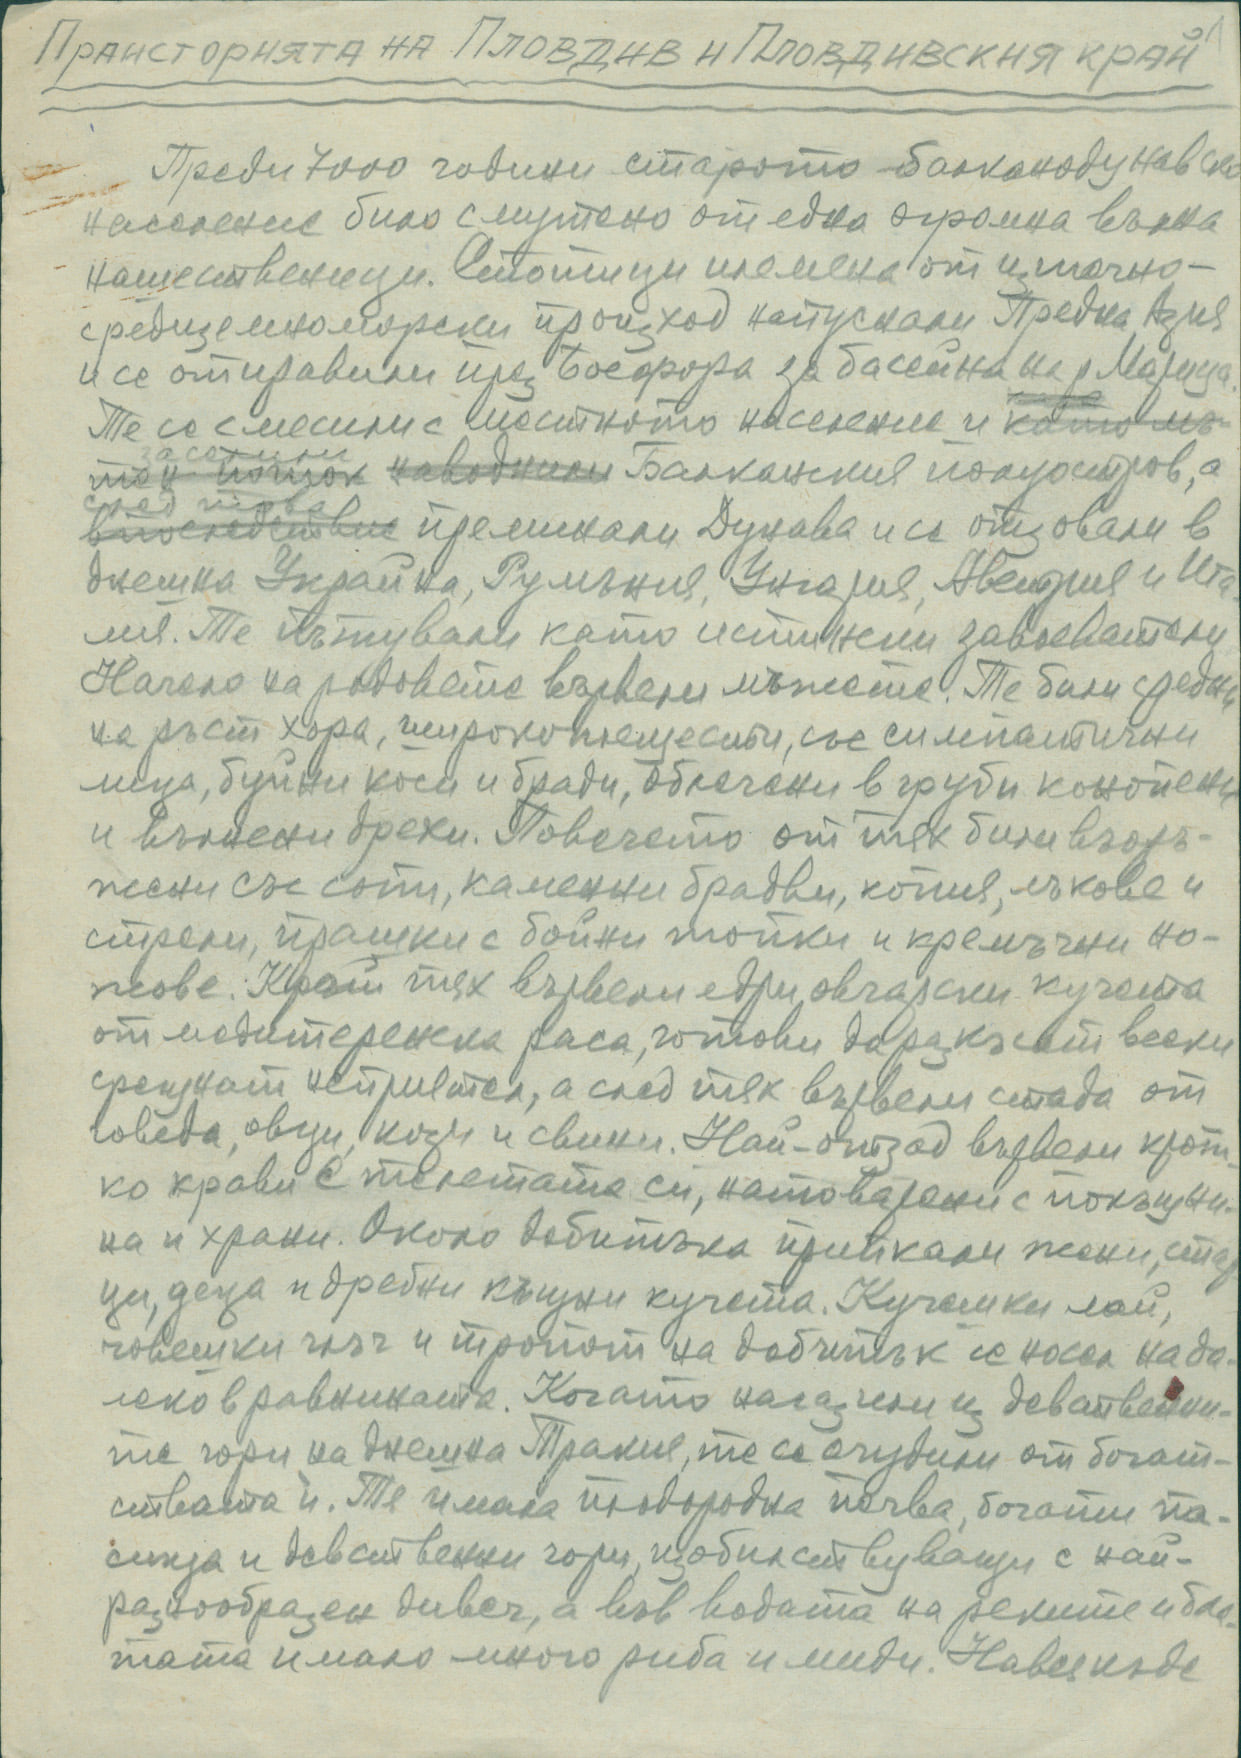 Праисторията на Пловдив и Пловдивския край
1
Преди 7000 години старото балканодунавско
население било смутено от една огромна вълна
нашественици. Стотици племена от източно-
средиземноморски произход напускали Предна Азия
и се отправили през Босфора за басейна на р Марица.
Те се смесили с местното население и като мъ-
заселили
тен поток наводнили Балканския полуостров, а
след това
впоследствие преминали Дунава и се отзовали в
днешна Украйна, Румъния, Унгария, Австрия и Ита-
лия. Те пътували като истински завоеватели
Начело на родовете вървели мъжете. Те били средни
на ръст хора, широкоплещести, със симпатични
лица, буйни коси и бради, облечени в груби конопени
и вълнени дрехи. Повечето от тях били въоръ-
жени със сопи, каменни брадви, копия, лъкове и
стрели, прашки с бойни топки и кремъчни но-
жове. Край тях вървели едри овчарски кучета
от медитеренска раса, готови да разкъсат всеки
срещнат неприятел, а след тях вървели стада от
говеда, овци, кози и свини. Най-отзад вървели крот-
ко крави с телетата си, натоварени с покъщни-
на и храни. Около добитъка припкали жени, стар
ци, деца и дребни къщни кучета. Кучешки лай,
човешки глъч и тропот на добитък се носел нада-
леко в равнината. Когато нагазили из девствени-
те гори на днешна Тракия, те се очудили от богат-
ствата ѝ. Тя имала плодородна почва, богати па-
сища и девствени гори, изобилствуващи с най-
разнообразен дивеч, а във водата на реките и бла-
тата имало много риба и миди. Навсякъде